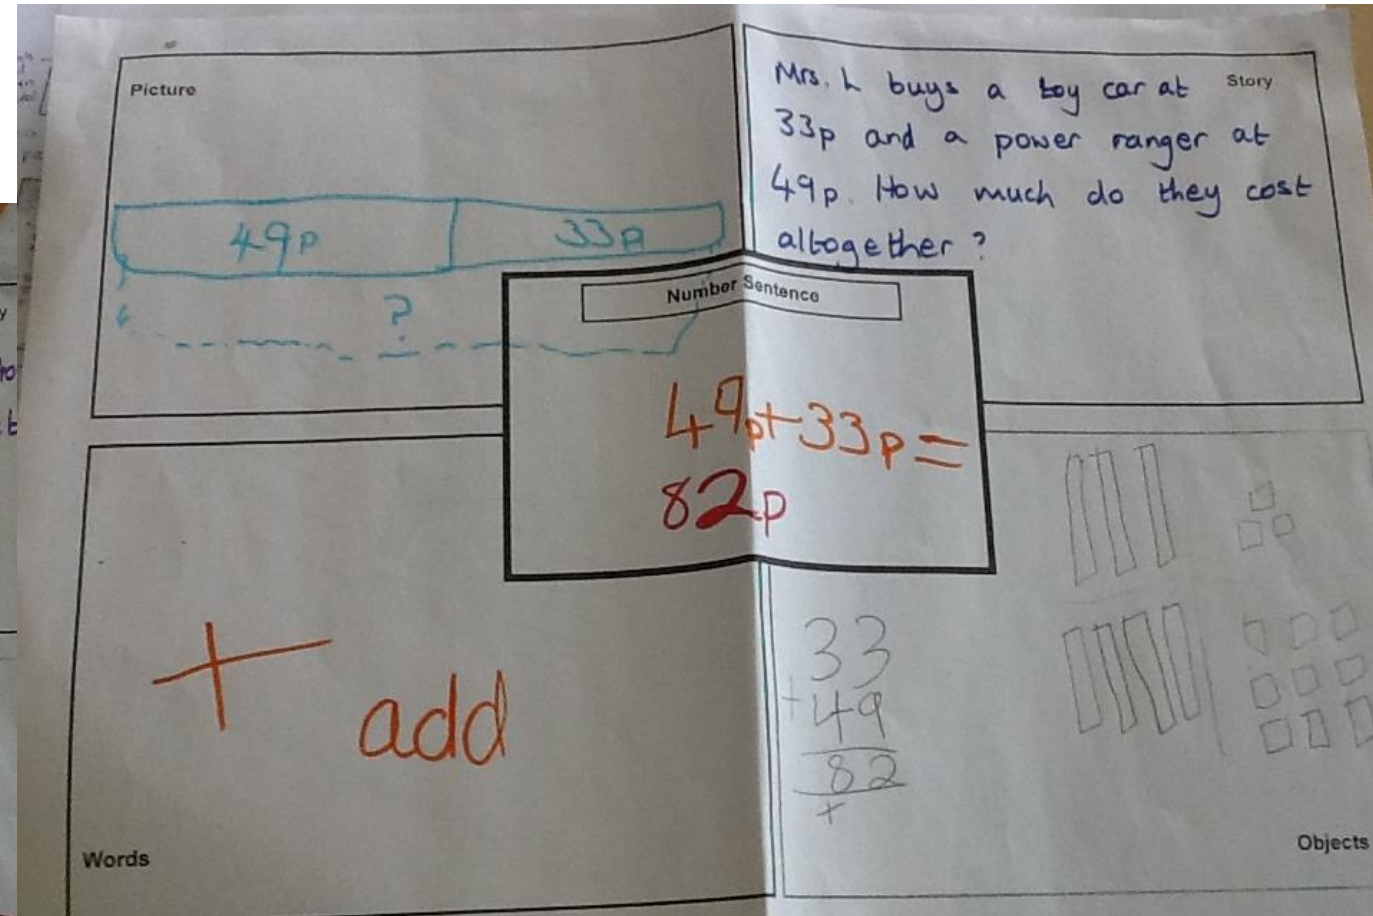 Picture
49p
33p
?
Story
Mrs. L buys a toy car at
33p and a power ranger at
49p. How much do they cost
altogether?
Number Sentence
49p+33p=
82p
+ add
Words
33
+49
82
+
Objects